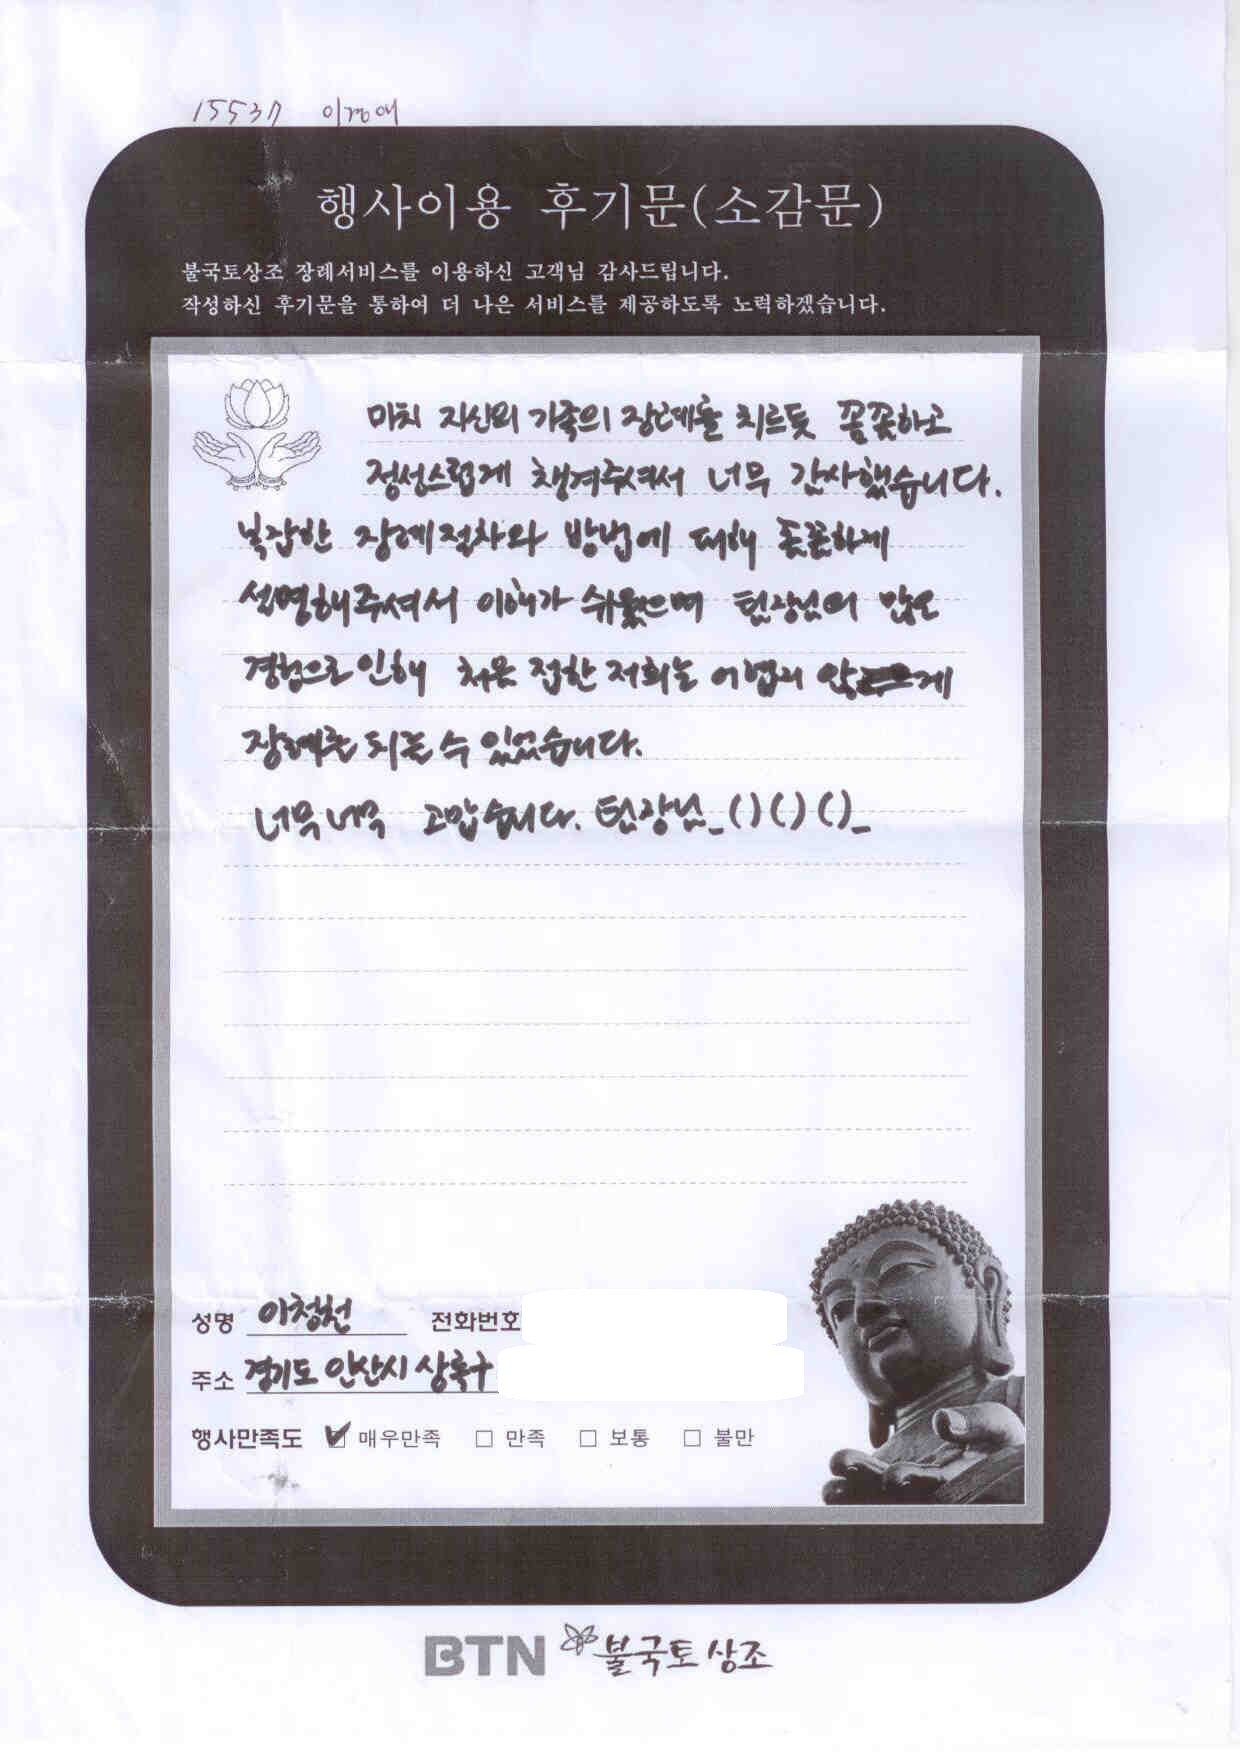 15537 이경애
행사이용 후기문(소감문)
불국토상조 장례서비스를 이용하신 고객님 감사드립니다.
작성하신 후기문을 통하여 더 나은 서비스를 제공하도록 노력하겠습니다.
마치 자신의 가족의 장례를 치르듯 꼼꼼하고
정성스럽게 챙겨주셔서 너무 감사했습니다.
복잡한 장례절차와 방법에 대해 꼼꼼하게
설명해주셔서 이해가 쉬웠으며 팀장님의 많은
경험으로 인해 처음 접한 저희는 어렵지 않게
장례를 치를 수 있었습니다.
너무너무 고맙습니다. 팀장님_()()()_
성명 이청천 전화번호
주소 경기도 안산시 상록구
행사만족도 ☑ 매우만족 □ 만족 □ 보통 □ 불만
BTN 불국토 상조